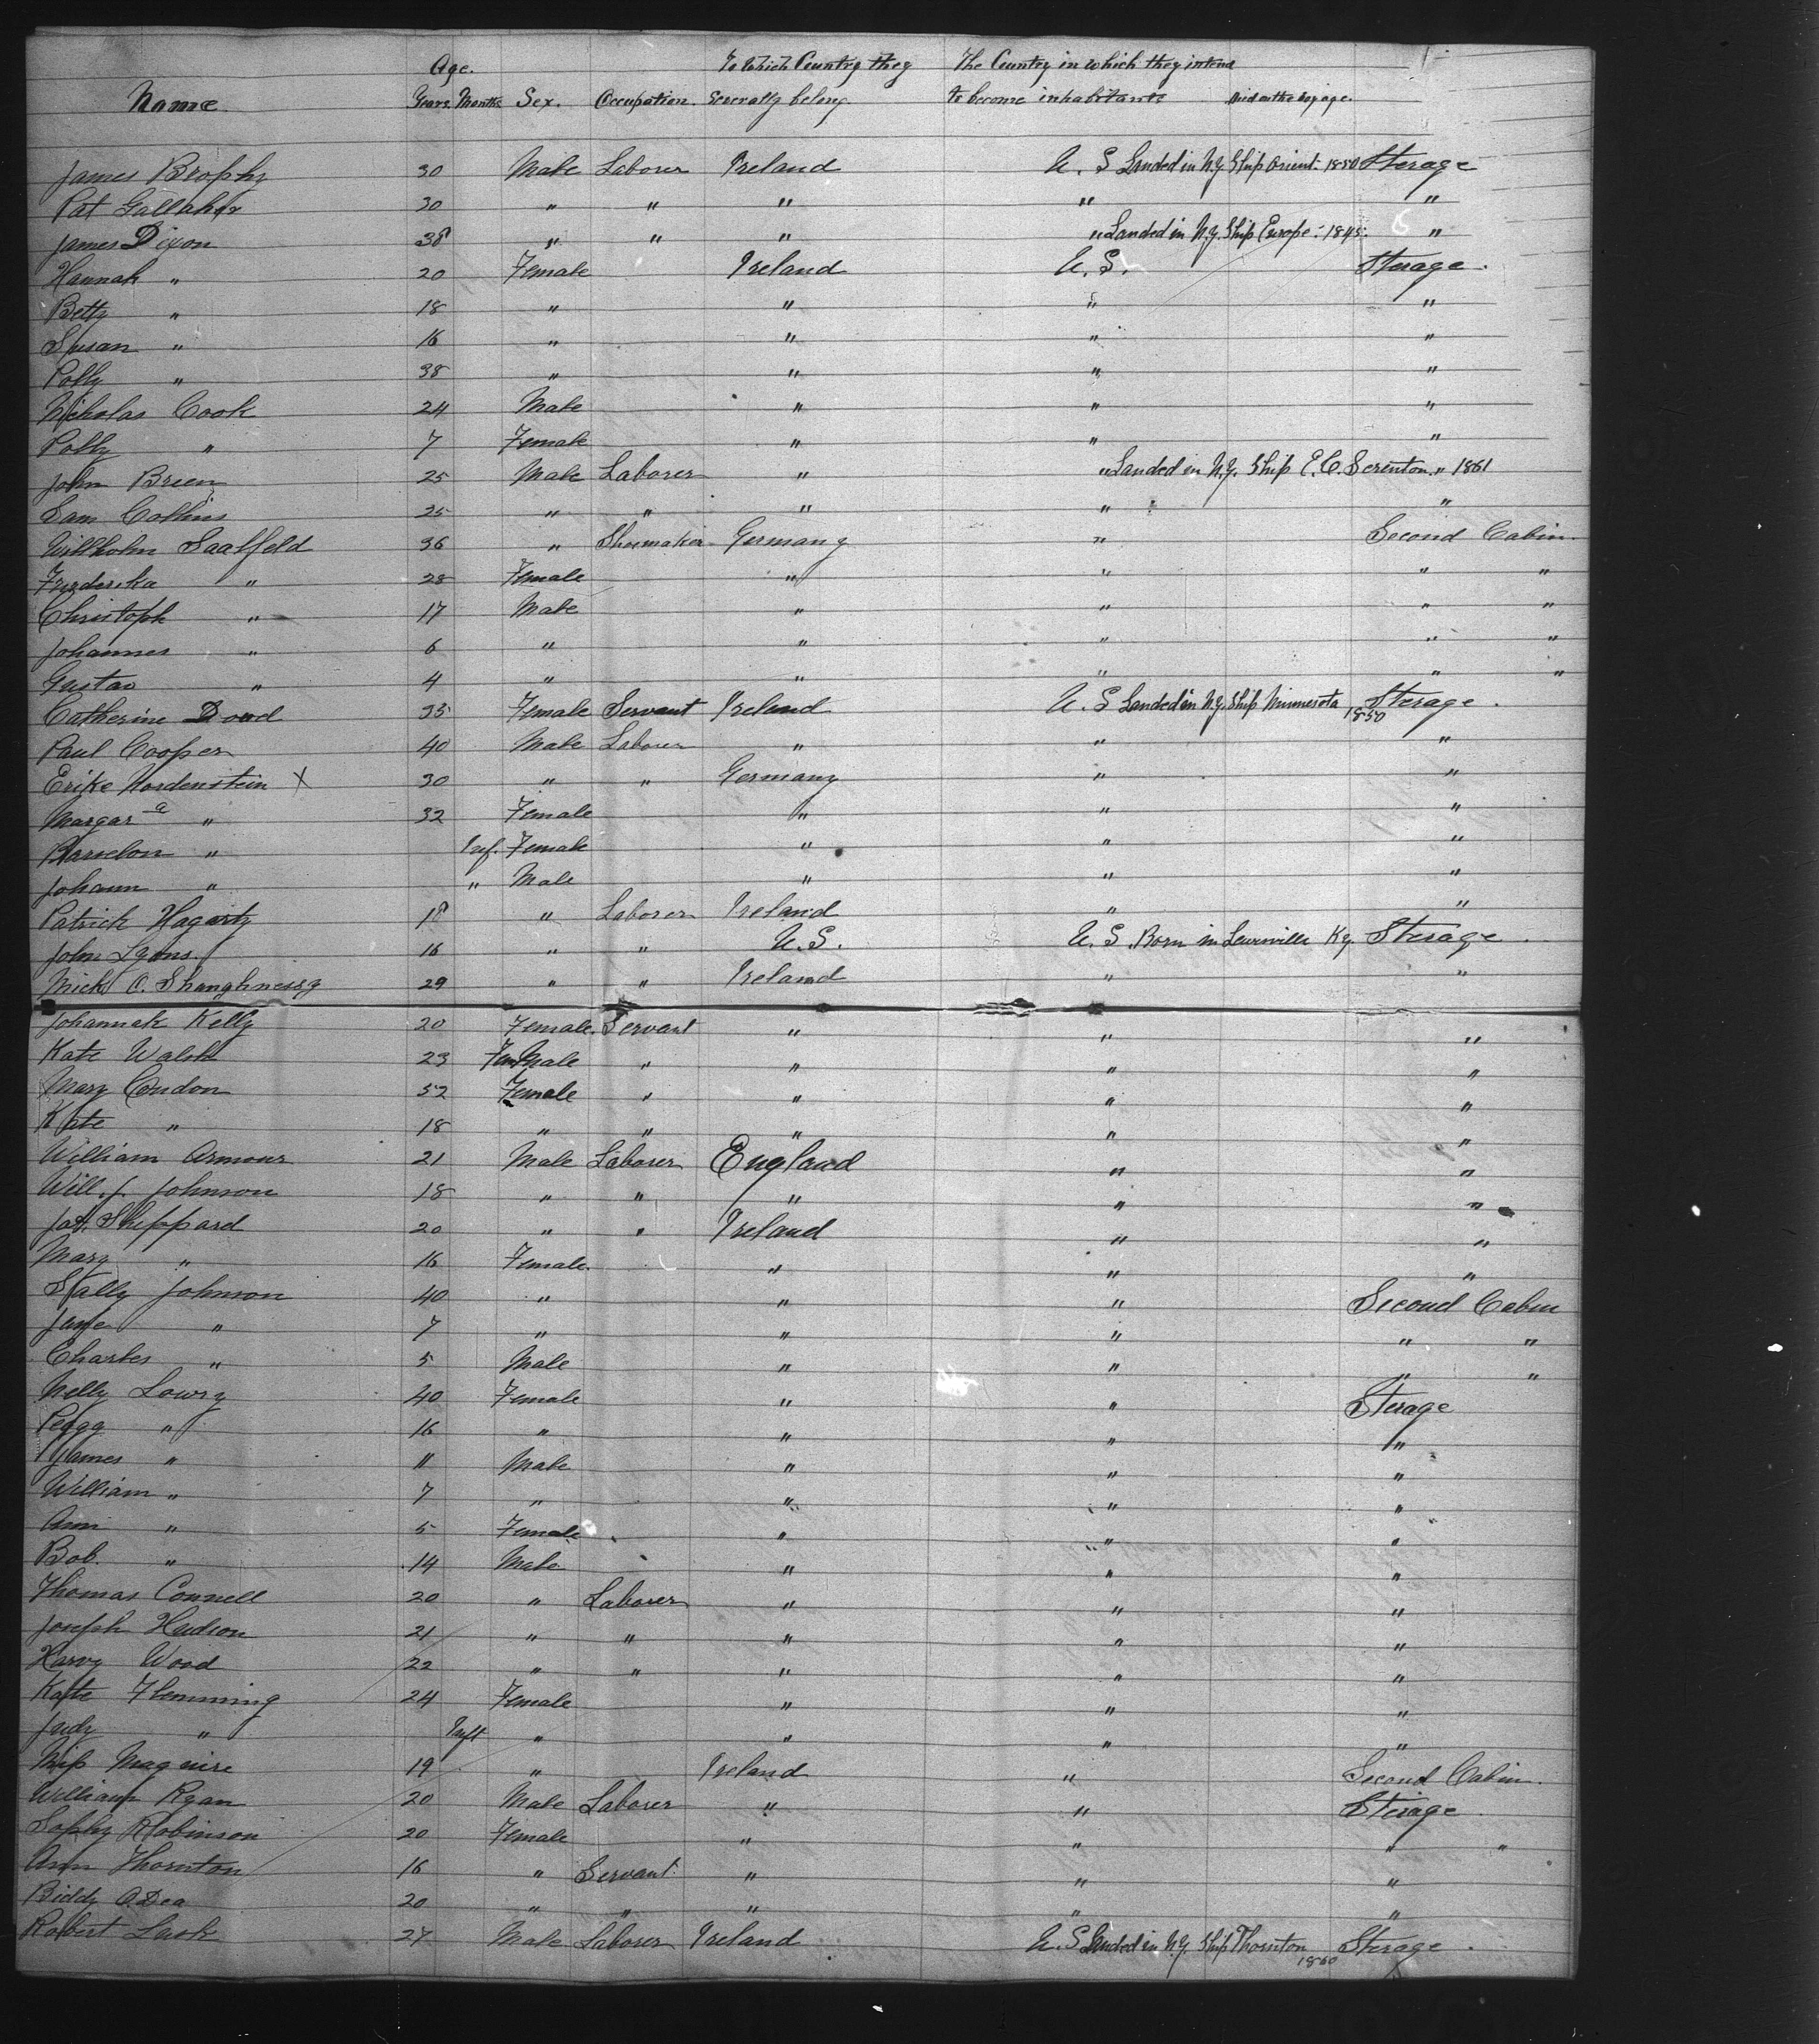 Age. To Which Country they The Country in which they intend
Name Years Months Sex. Occupation. Severally belong. to become inhabitants Died on the Voyage.
James Brophy 30 Male Laborer Ireland U. S Landed in N.Y. Ship Orient. 1850 Sterage
Pat Gallaher 30 " " " " "
James Dixon 38 " " " " Landed in N.Y. Ship Europe: 1845. "
Hannah " 20 Female Ireland U. S. Sterage.
Betty " 18 " " " "
Susan " 16 " " " "
Polly " 38 " " " "
Nicholas Cook 24 Male " " "
Polly " 7 Female " " "
John Breen 25 Male Laborer " " Landed in N.Y. Ship E. C. Screnton. " 1861
Sam Collins 25 " " " " "
Willhelm Saalfeld 36 " Shoemaker Germany " Second Cabin.
Frederika " 28 Female " " " "
Christoph " 17 Male " " " "
Johannes " 6 " " " " "
Gustav " 4 " " " " "
Catherine Dowd 35 Female Servant Ireland U. S Landed in N.Y. Ship Minnesota 1850 Sterage.
Paul Cooper 40 Male Laborer " " "
Erike Nordenstein X 30 " " Germany " "
Margar a " 32 Female " " "
" Inf. Female " " "
Johann " " Male " " "
Patrick Hagarty 18 " Laborer Ireland " "
John Lyons. 16 " " U. S. U. S. Born in Lewisville Ky. Sterage.
Mick O. Shanghnessy 29 " " Ireland " "
Johannah Kelly 20 Female. Servant " " "
Kate Walsh 23 FemMale " " " "
Mary Condon 52 Female " " " "
Kate " 18 " " " " "
William Armour 21 Male Laborer England " "
Will. J. Johnson 18 " " " " "
Jas. Sheppard 20 " " Ireland " "
Mary " 16 Female. " " "
Sally Johnson 40 " " " Second Cabin
Jane " 7 " " " " "
Charles " 5 Male " " " "
Nelly Lowry 40 Female " " Sterage
Peggy " 16 " " " "
James " 11 Male " " "
William " 7 " " " "
Ann " 5 Female " " "
Bob. " 14 Male " " "
Thomas Connell 20 " Laborer " " "
Joseph Hudson 21 " " " " "
Harvy Wood 22 " " " " "
Kate Flemming 24 Female " " "
Judy " Inft " " " "
Miss Maguire 19 " Ireland " Second Cabin.
William Ryan 20 Male Laborer " " Sterage.
Sophy Robinson 20 Female " " " "
Ann Thornton 16 " Servant. " " "
Biddy O.Dea 20 " " " " "
Robert Lusk 27 Male Laborer Ireland U. S Landed in N.Y. Ship Thornton 1860 Sterage.